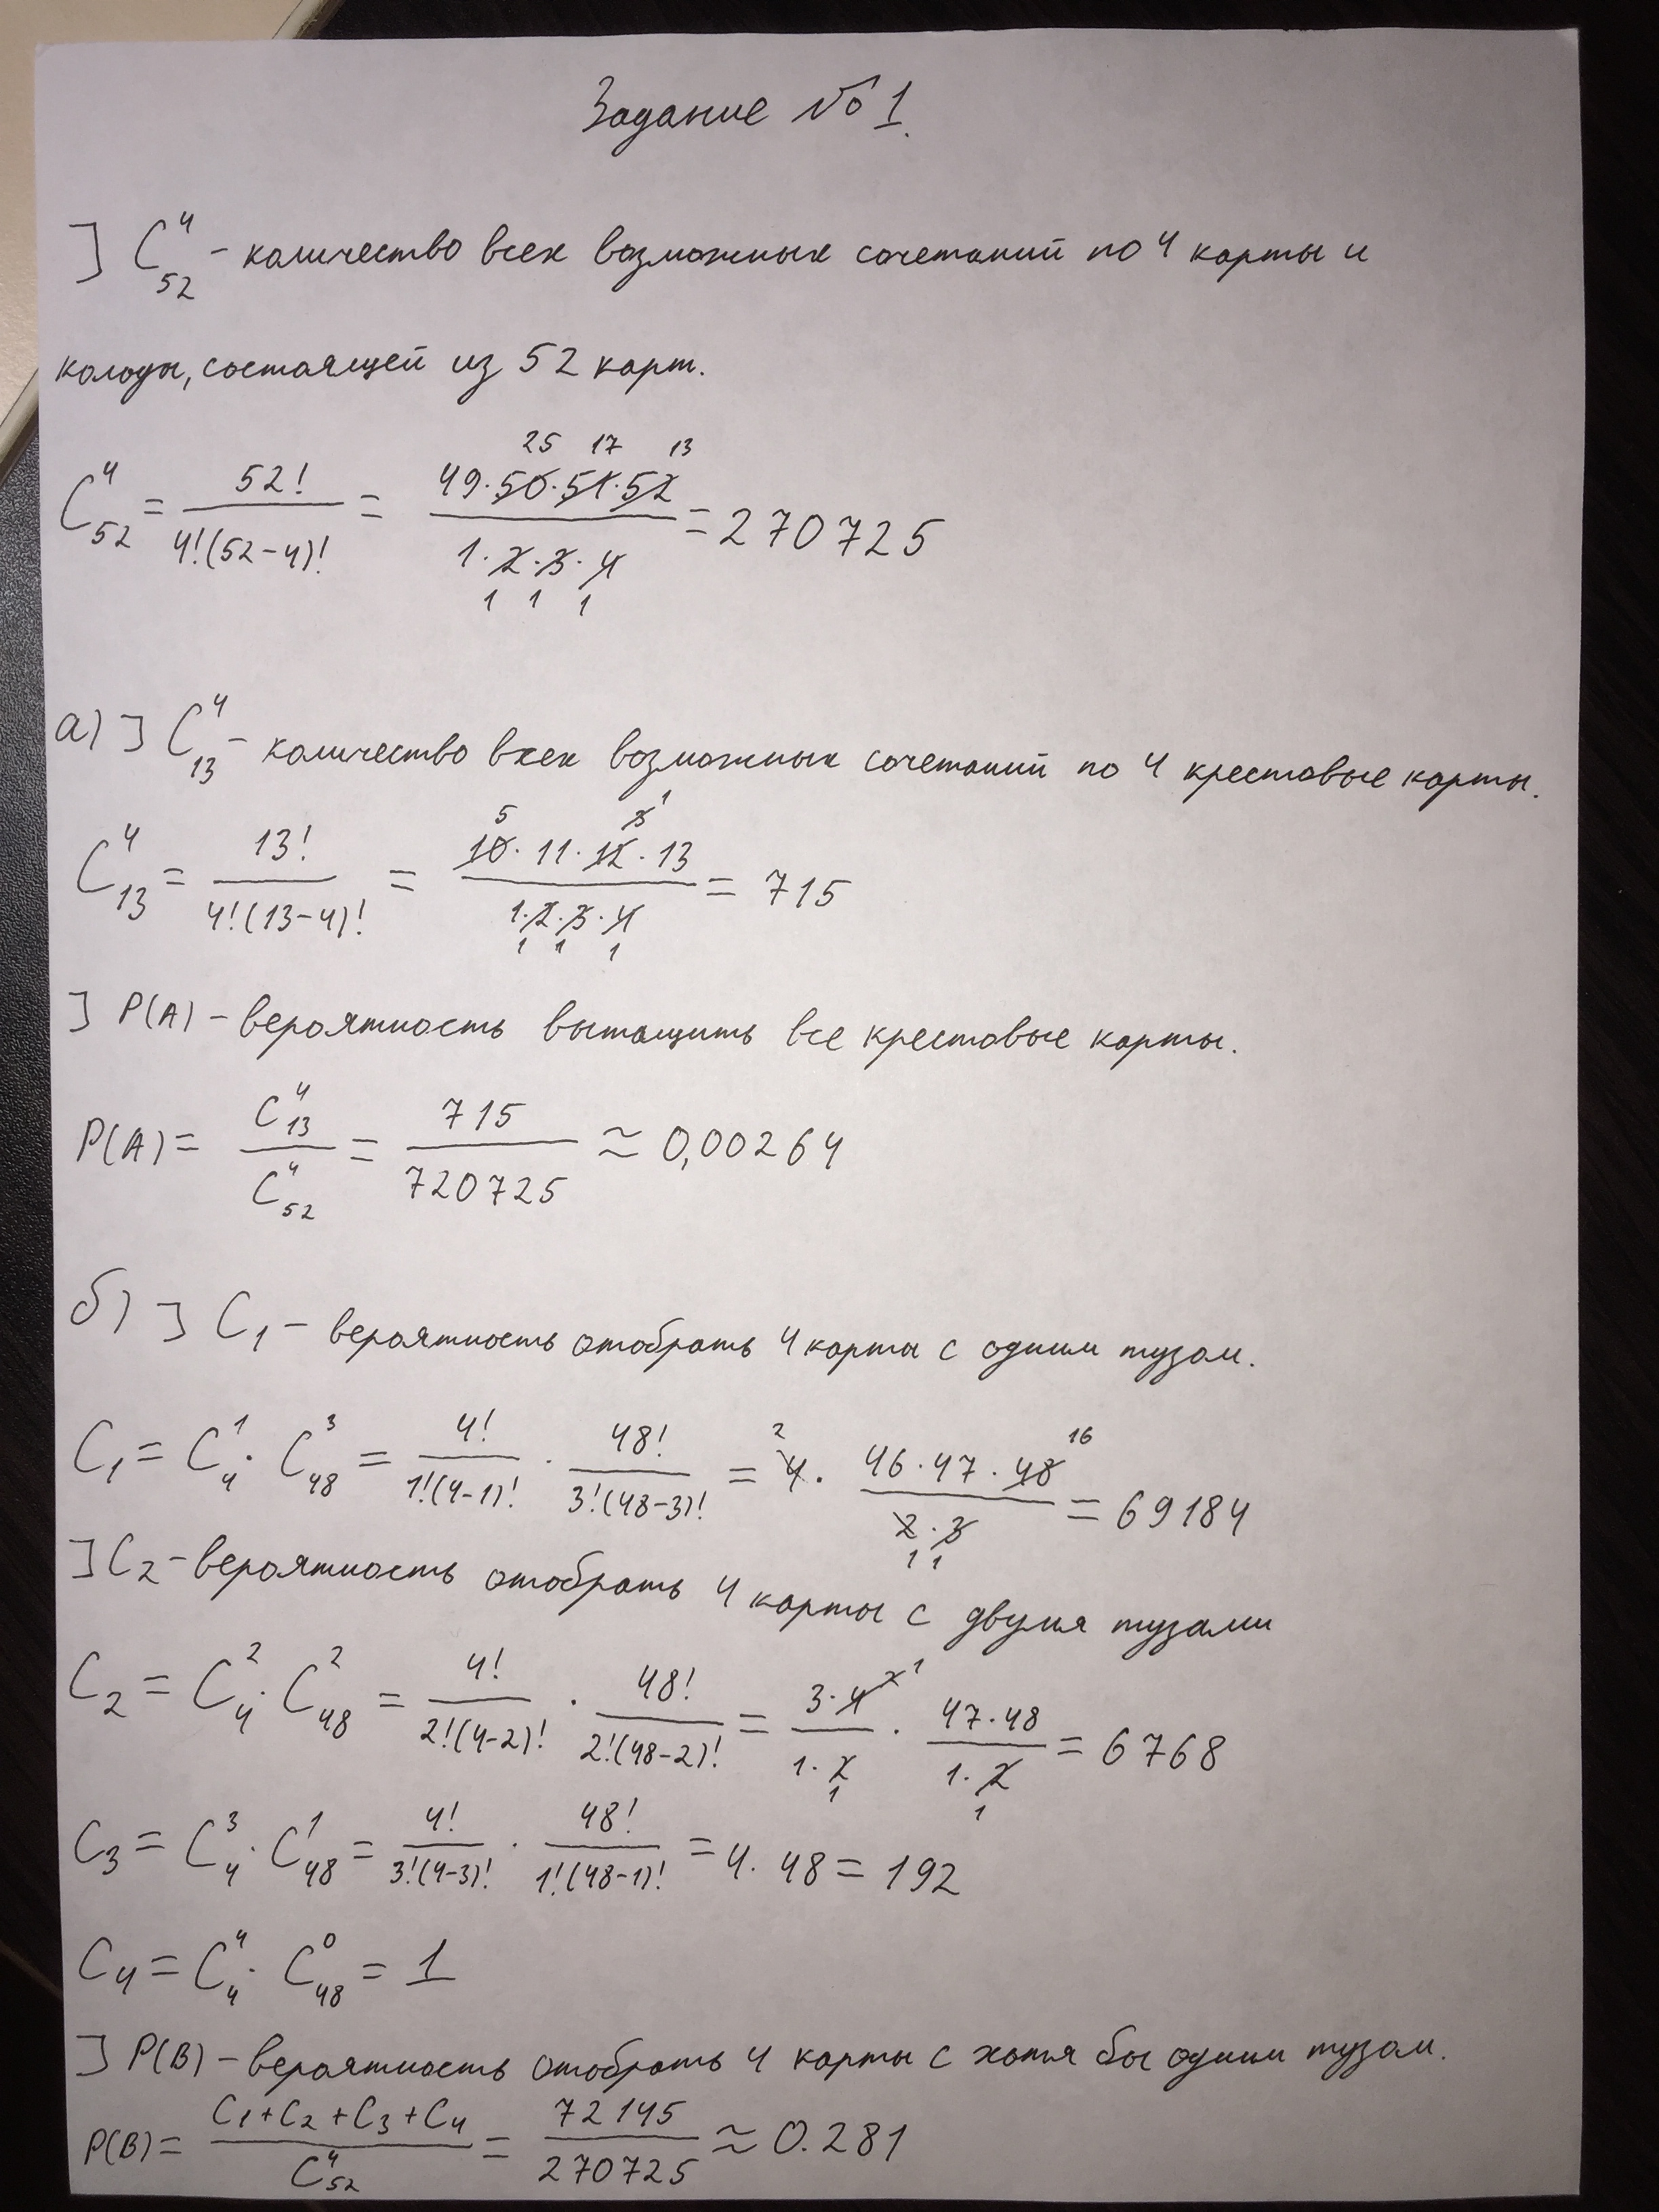 Задание № 1.
] C₅₂⁴ - количество всех возможных сочетаний по 4 карты и
колоды, состоящей из 52 карт.
C₅₂⁴ = 52! / 4!(52-4)! = 49·50·51·52 / 1·2·3·4 = 270725
25 17 13
1 1 1
а) ] C₁₃⁴ - количество всех возможных сочетаний по 4 крестовые карты.
C₁₃⁴ = 13! / 4!(13-4)! = 10·11·12·13 / 1·2·3·4 = 715
5 3 1
1 1 1
] P(A) - вероятность вытащить все крестовые карты.
P(A) = C₁₃⁴ / C₅₂⁴ = 715 / 720725 ≈ 0,00264
б) ] C₁ - вероятность отобрать 4 карты с одним тузом.
C₁ = C₄¹ · C₄₈³ = 4! / 1!(4-1)! · 48! / 3!(48-3)! = 4 · 46·47·48 / 2·3 = 69184
2 16
1 1
] C₂ - вероятность отобрать 4 карты с двумя тузами
C₂ = C₄² · C₄₈² = 4! / 2!(4-2)! · 48! / 2!(48-2)! = 3·4 / 1·2 · 47·48 / 1·2 = 6768
2 1
1 1
C₃ = C₄³ · C₄₈¹ = 4! / 3!(4-3)! · 48! / 1!(48-1)! = 4·48 = 192
C₄ = C₄⁴ · C₄₈⁰ = 1
] P(B) - вероятность отобрать 4 карты с хотя бы одним тузом.
P(B) = C₁+C₂+C₃+C₄ / C₅₂⁴ = 72145 / 270725 ≈ 0.281